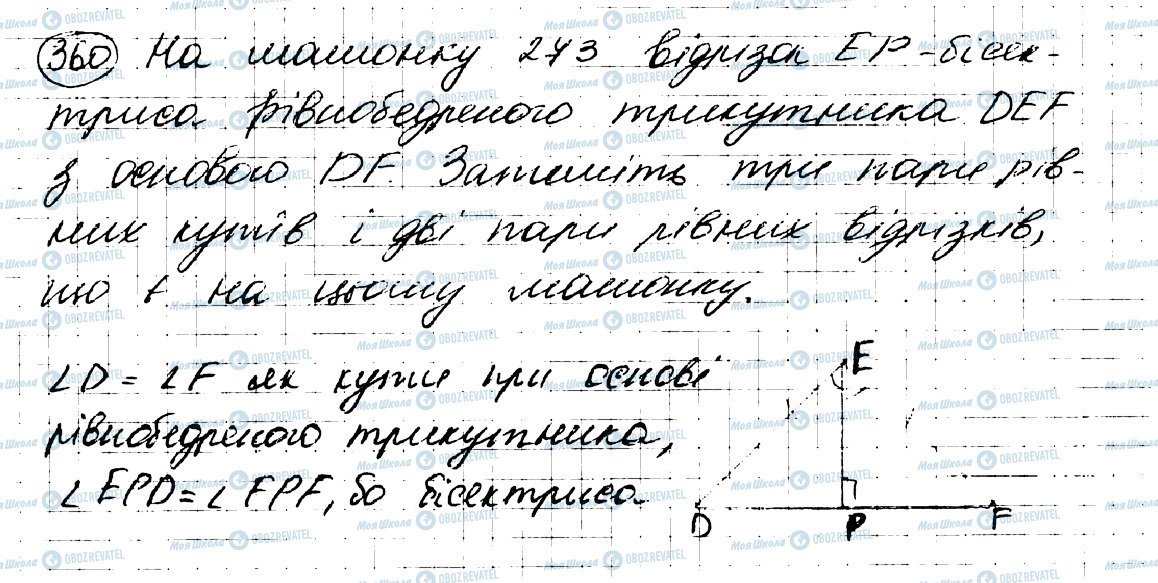 360 На малюнку 273 відрізок EP-бісек-
триса рівнобедреного трикутника DEF
з основою DF. Запишіть три пари рів-
них кутів і дві пари рівних відрізків,
що є на цьому малюнку.
∠D = ∠F як кути при основі
рівнобедреного трикутника,
∠EPD = ∠EPF, бо бісектриса
E
D P F